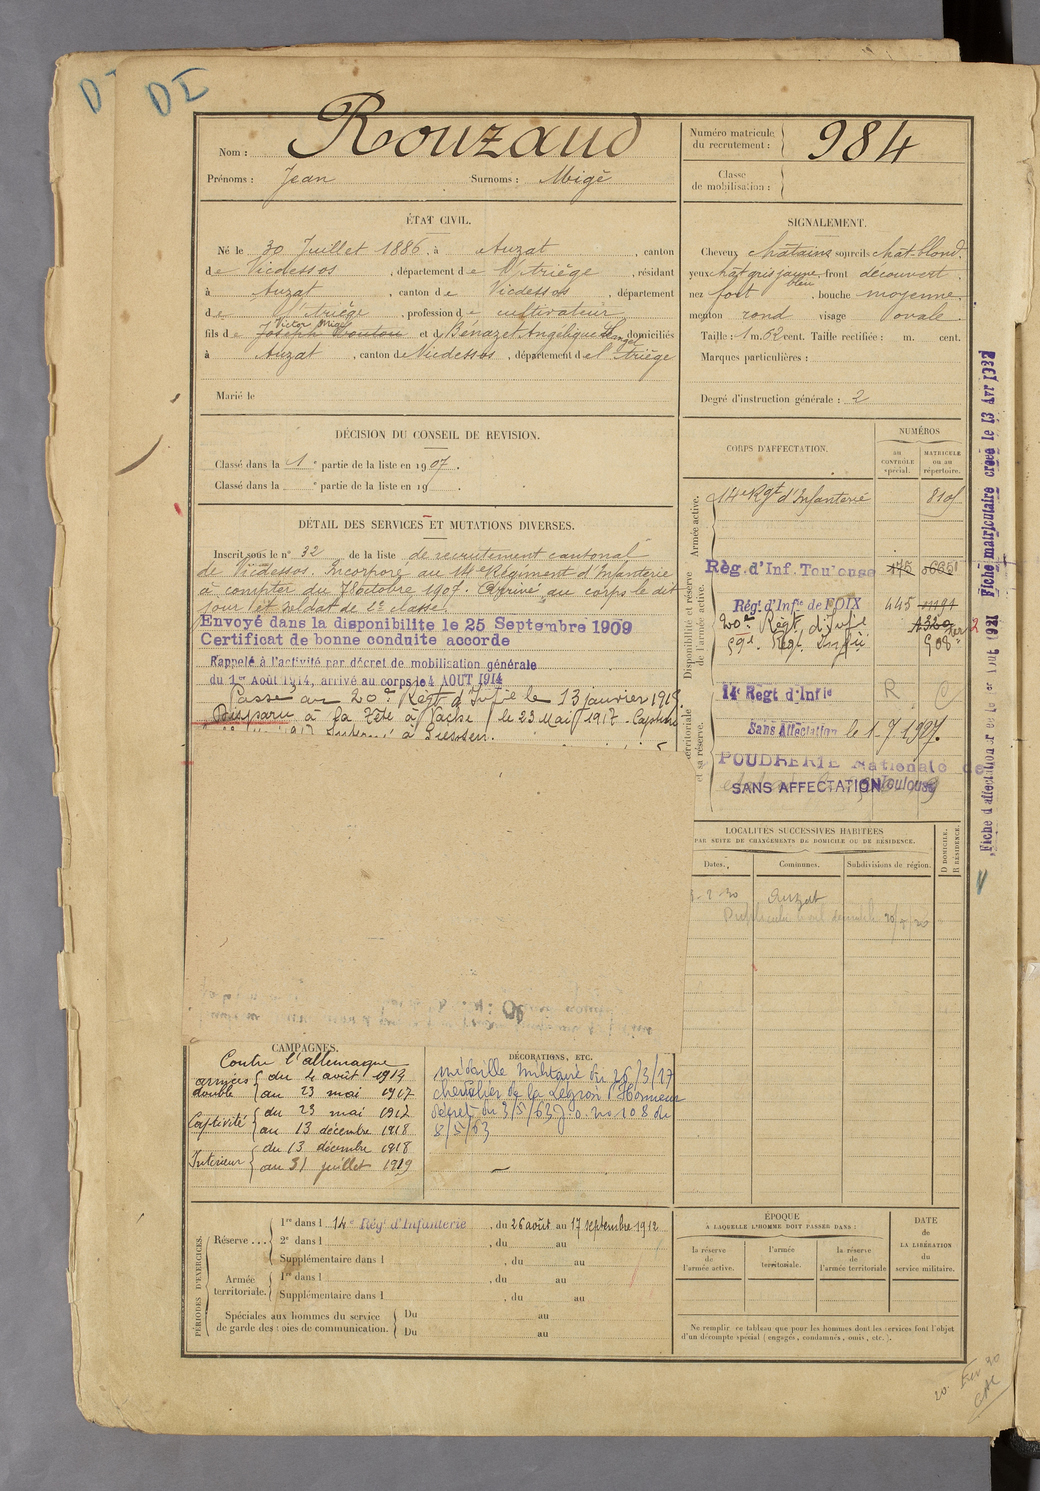 DI
Nom : Rouzaud
Prénoms : Jean Surnoms : Migé
Numéro matricule
du recrutement : 984
Classe
de mobilisation :
ÉTAT CIVIL.
Né le 30 Juillet 1886, à Auzat, canton
de Vicdessos, département de l'Ariège, résidant
à Auzat, canton de Vicdessos, département
de l'Ariège, profession de cultivateur
Victor Migé
fils de Joseph Doutou et de Bénazet Angélique domiciliés
à Auzat, canton de Vicdessos, département de l'Ariège
Marié le
SIGNALEMENT.
Cheveux châtains sourcils chat. blond.
yeux chat gris jaune front découvert
bleu
nez fort, bouche moyenne.
menton rond visage ovale.
Taille : 1 m. 62 cent. Taille rectifiée : m. cent.
Marques particulières :
Degré d'instruction générale : 2
DÉCISION DU CONSEIL DE REVISION.
Classé dans la 1e partie de la liste en 1907.
Classé dans la e partie de la liste en 19 .
DÉTAIL DES SERVICES ET MUTATIONS DIVERSES.
Inscrit sous le n° 32 de la liste de recrutement cantonal
de Vicdessos. Incorporé au 14e Régiment d'Infanterie
à compter du 7 8octobre 1907. Arrivé au corps le dit
jour et soldat de 2e classe.
Envoyé dans la disponibilite le 25 Septembre 1909
Certificat de bonne conduite accorde
Rappelé à l'activité par décret de mobilisation générale
du 1er Août 1914, arrivé au corps le 4 AOUT 1914
Passé au 20e Régt d'Infie le 13 janvier 1915
Disparu à la Tête à Vache le 23 Mai 1917 - Capturé
1917 Interné à Giessen.
CORPS D'AFFECTATION.
NUMÉROS
au
CONTRÔLE
spécial.
MATRICULE
ou au
répertoire.
Armée active.
14e Rgt d'Infanterie 8101
Disponibilité et réserve
de l'armée active.
Règ. d'Inf. Toulouse 175
Régt d'Infie de FOIX 445
20e Régt d'Infie
59e Régt Infie 908
territoriale
et sa réserve.
14e Régt d'Infie R
Sans Affectation le 1-7-1927.
POUDRERIE Nationale de
Toulouse
SANS AFFECTATION
Fiche matriculaire creée le 13 Avr 1932
LOCALITÉS SUCCESSIVES HABITÉES
PAR SUITE DE CHANGEMENTS DE DOMICILE OU DE RÉSIDENCE.
Dates. Communes. Subdivisions de région. D DOMICILE. R RÉSIDENCE.
-2-30 Auzat
CAMPAGNES.
Contre l'allemagne
armées { du 4 août 1914
double { au 23 mai 1917
Captivité { du 23 mai 1917
au 13 décembre 1918
Intérieur { du 13 décembre 1918
au 31 juillet 1919
DÉCORATIONS, ETC.
Médaille Militaire du 26/3/17
chevalier de la Légion d'Honneur
décret du 3/5/63 J.O. no 108 du
8/5/63
PÉRIODES D'EXERCICES.
Réserve ...
1re dans l 14e Rég. d'Infanterie, du 26 août au 17 septembre 1912
2e dans l , du au
Supplémentaire dans l , du au
Armée
territoriale.
1re dans l , du au
Supplémentaire dans l , du au
Spéciales aux hommes du service
de garde des voies de communication.
Du au
Du au
ÉPOQUE
À LAQUELLE L'HOMME DOIT PASSER DANS :
la réserve
de
l'armée active.
l'armée
territoriale.
la réserve
de
l'armée territoriale
DATE
de
LA LIBÉRATION
du
service militaire.
Ne remplir ce tableau que pour les hommes dont les services font l'objet
d'un décompte spécial (engagés, condamnés, omis, etc.).